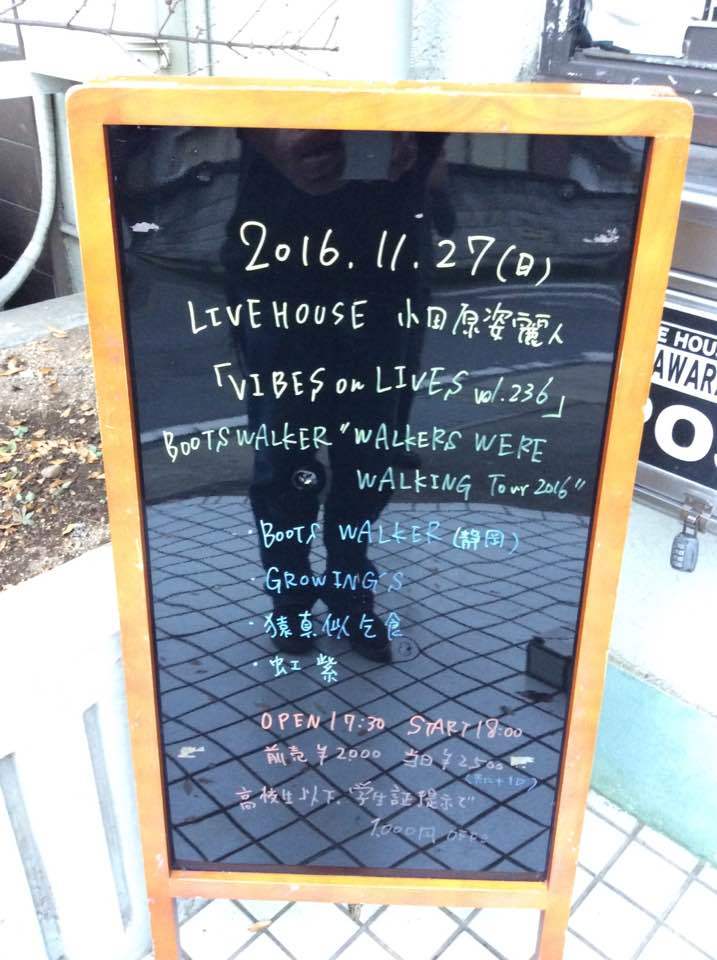 2016.11.27(日)
LIVEHOUSE 小田原姿麗人
「VIBES on LIVES vol.236」
BOOTSWALKER "WALKERS WERE
WALKING Tour 2016"
・BOOTS WALKER (静岡)
・GROWING'S
・猿真似乞食
・虹紫
OPEN 17:30 START 18:00
前売¥2000 当日¥2,500
(共に+1D)
高校生以下、学生証提示で
1,000円 OFF
E HOU
AWAR